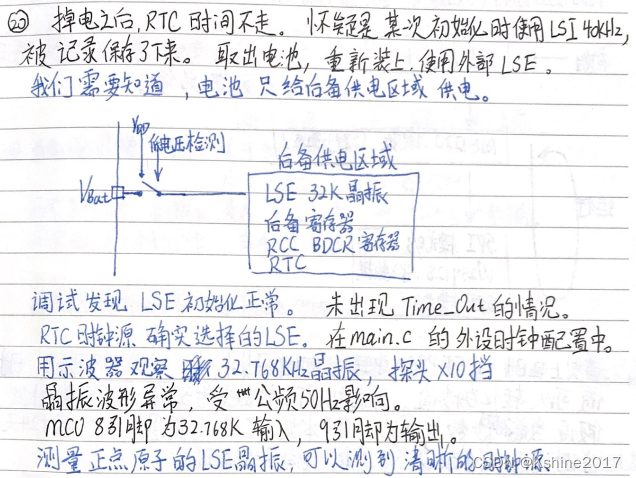 ㉒ 掉电之后,RTC 时间不走。怀疑是某次初始化时使用LSI 40kHz,
被记录保存了下来。 取出电池,重新装上,使用外部LSE。
我们需要知道,电池只给后备供电区域供电。
VDD
低电压检测
后备供电区域
VBat
LSE 32K晶振
后备寄存器
RCC BDCR寄存器
RTC
调试发现 LSE 初始化正常。 未出现 Time_Out 的情况。
RTC时钟源 确实选择的LSE. 在main.c 的外设时钟配置中。
用示波器观察 32.768KHz晶振, 探头 X10挡
晶振波形异常, 受 公频50Hz影响。
MCU 8引脚为32.768K 输入, 9引脚为输出。
测量正点原子的LSE晶振,可以测到清晰的时钟源
CSDN @Kshine2017